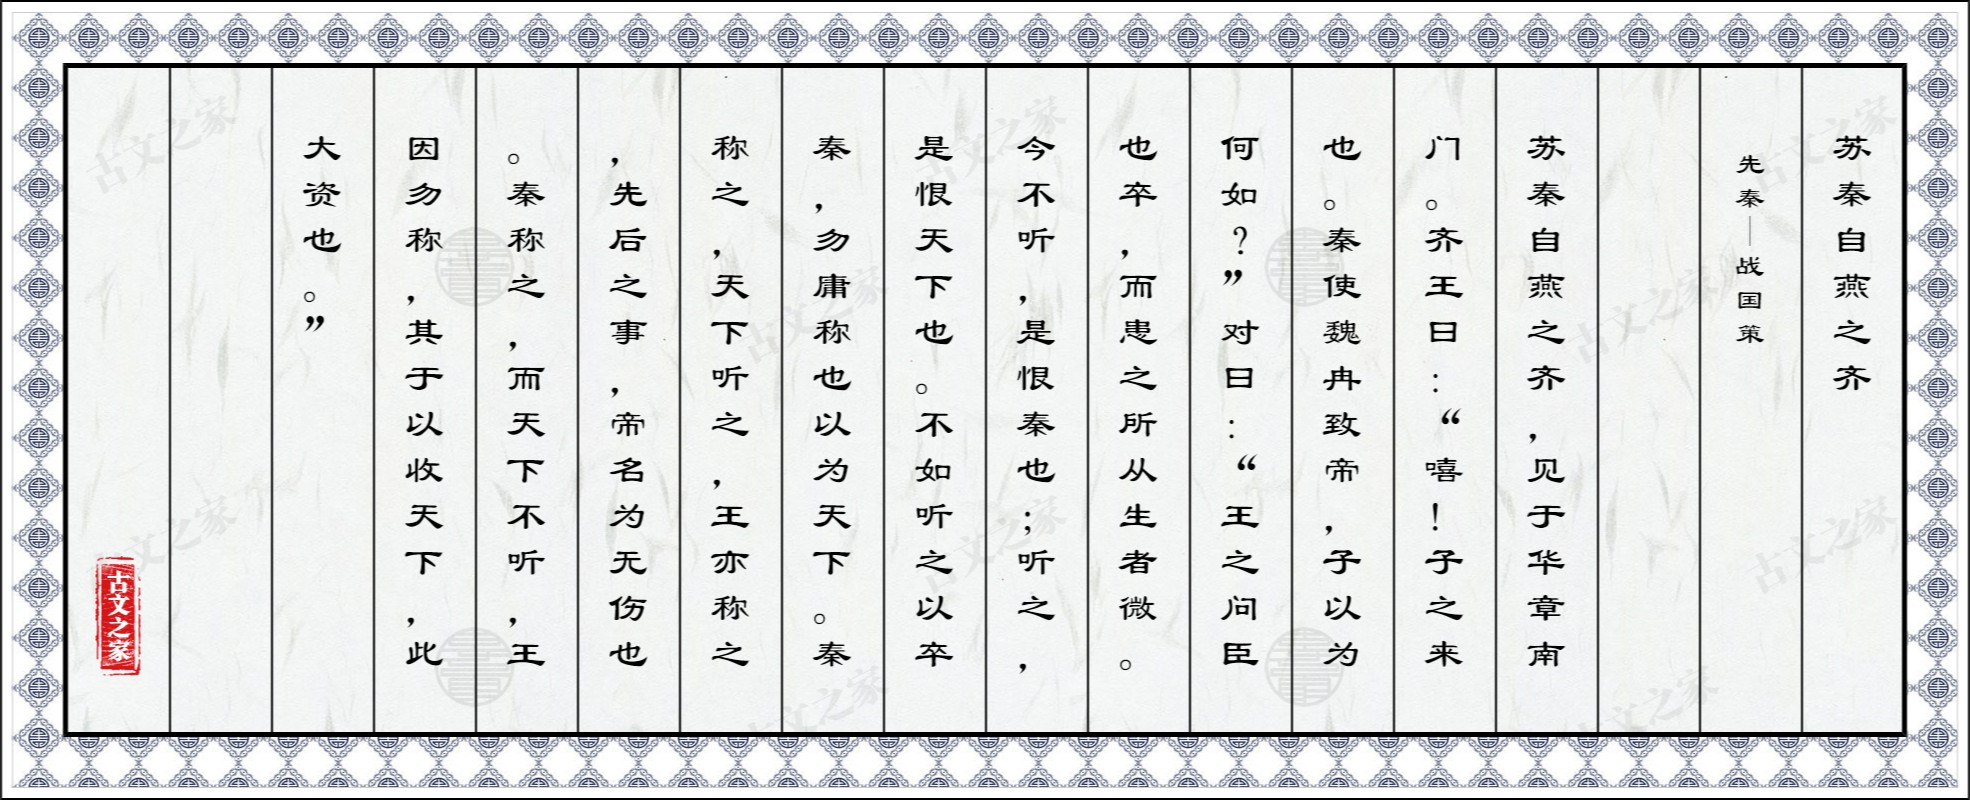 苏秦自燕之齐
先秦—战国策
苏秦自燕之齐，见于华章南
门。齐王曰：“嘻！子之来
也。秦使魏冉致帝，子以为
何如？”对曰：“王之问臣
也卒，而患之所从生者微。
今不听，是恨秦也；听之，
是恨天下也。不如听之以卒
秦，勿庸称也以为天下。秦
称之，天下听之，王亦称之
，先后之事，帝名为无伤也
。秦称之，而天下不听，王
因勿称，其于以收天下，此
大资也。”
古文之家